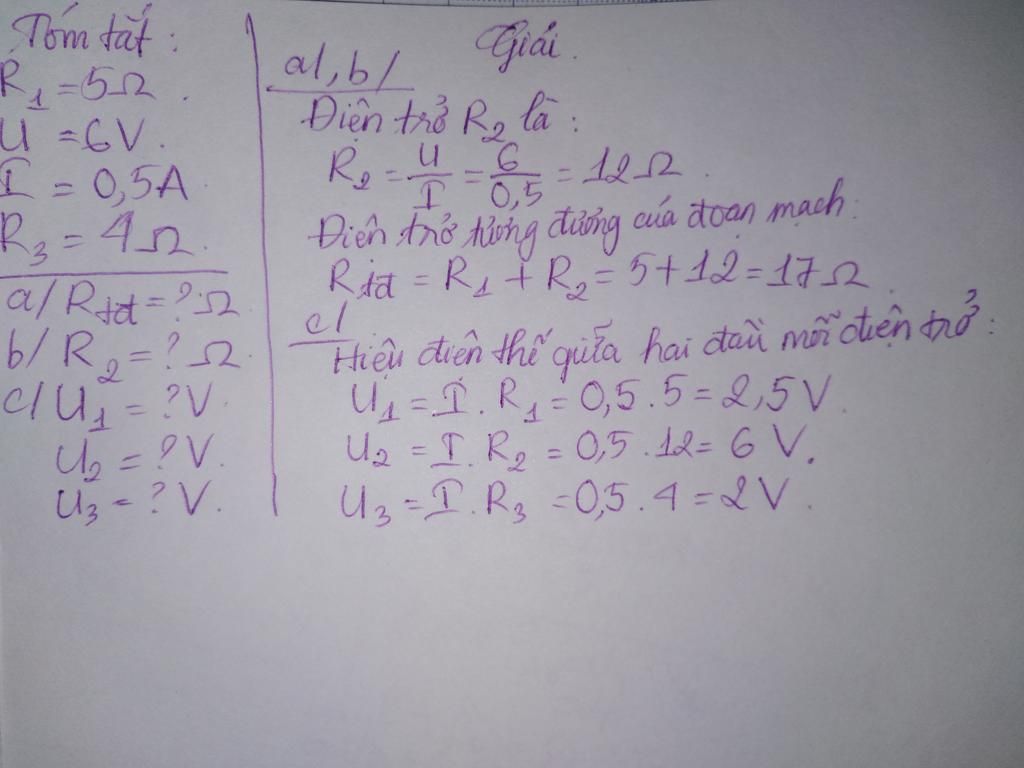 Tóm tắt:
R1 = 5Ω.
U = 6V.
I = 0,5A
R3 = 4Ω.
a/ Rtđ = ? Ω
b/ R2 = ? Ω
c/ U1 = ? V
U2 = ? V.
U3 = ? V.
Giải.
a/, b/
Điện trở R2 là:
R2 = U/I = 6/0,5 = 12Ω.
Điện trở tương đương của đoạn mạch:
Rtđ = R1 + R2 = 5 + 12 = 17Ω.
c/
Hiệu điện thế giữa hai đầu mỗi điện trở:
U1 = I. R1 = 0,5. 5 = 2,5V.
U2 = I. R2 = 0,5. 12 = 6 V.
U3 = I. R3 = 0,5. 4 = 2V.